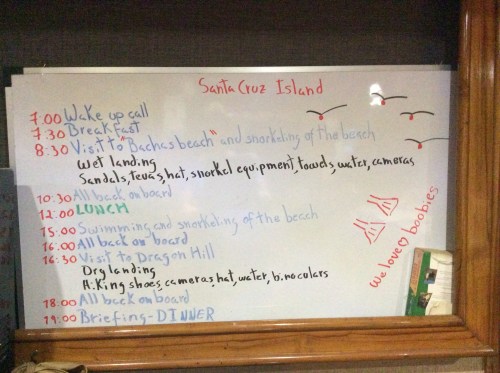 Santa Cruz Island
7:00 Wake up call
7:30 Breakfast
8:30 Visit to "Bachas beach" and snorkeling of the beach
Wet landing
Sandals, tevas, hat, snorkel equipment, towels, water, cameras
10:30 All back on board
12:00 LUNCH
15:00 Swimming and snorkeling of the beach
16:00 All back on board
16:30 Visit to Dragon Hill
Dry landing
Hiking shoes, cameras, hat, water, binoculars
18:00 All back on board
19:00 Briefing - DINNER
We love boobies